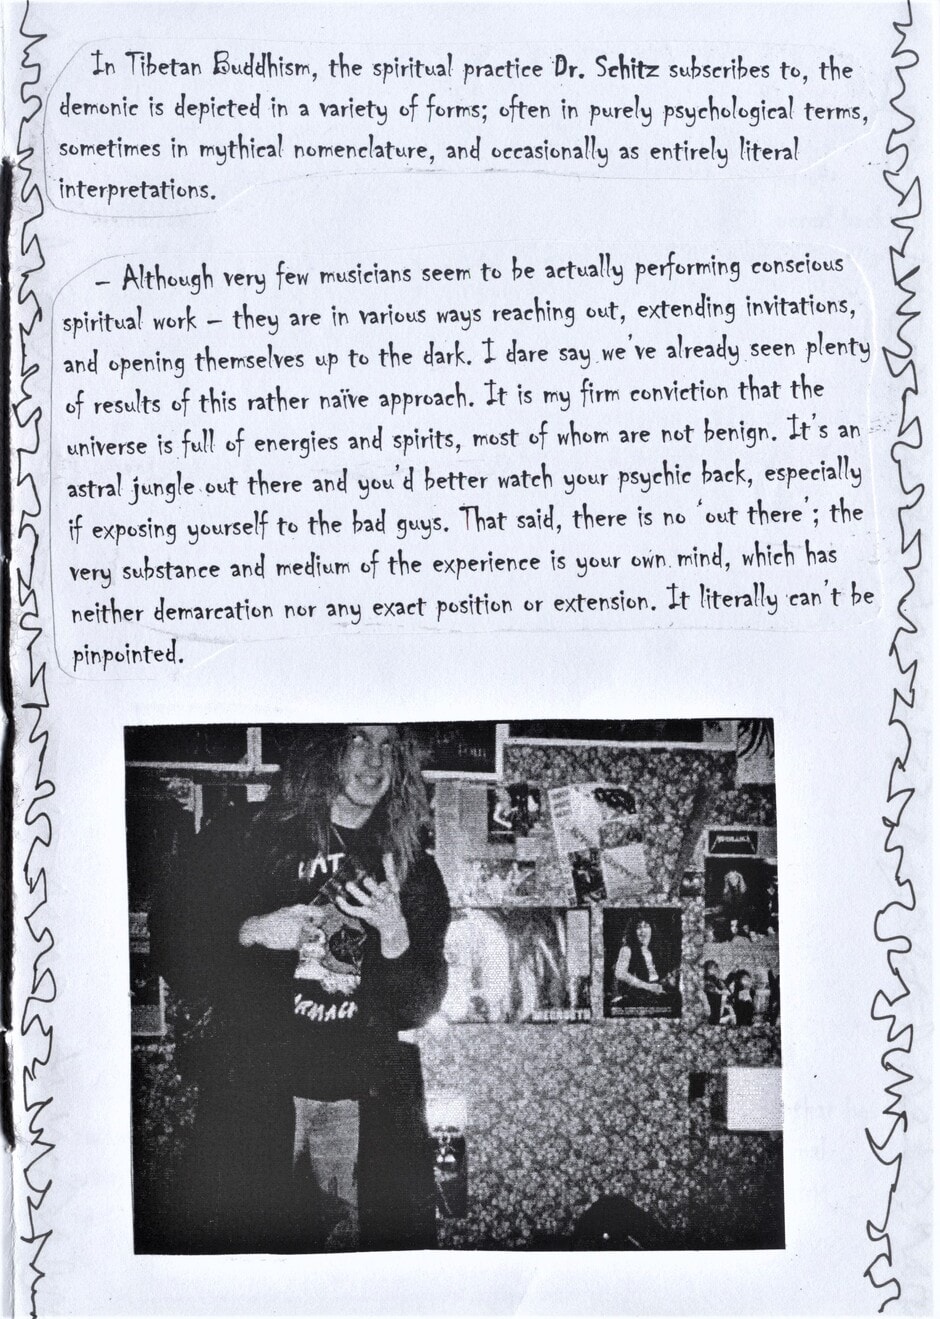 In Tibetan Buddhism, the spiritual practice Dr. Schitz subscribes to, the
demonic is depicted in a variety of forms; often in purely psychological terms,
sometimes in mythical nomenclature, and occasionally as entirely literal
interpretations.
– Although very few musicians seem to be actually performing conscious
spiritual work – they are in various ways reaching out, extending invitations,
and opening themselves up to the dark. I dare say we've already seen plenty
of results of this rather naïve approach. It is my firm conviction that the
universe is full of energies and spirits, most of whom are not benign. It's an
astral jungle out there and you'd better watch your psychic back, especially
if exposing yourself to the bad guys. That said, there is no 'out there'; the
very substance and medium of the experience is your own mind, which has
neither demarcation nor any exact position or extension. It literally can't be
pinpointed.
METALLICA
MEGADETH